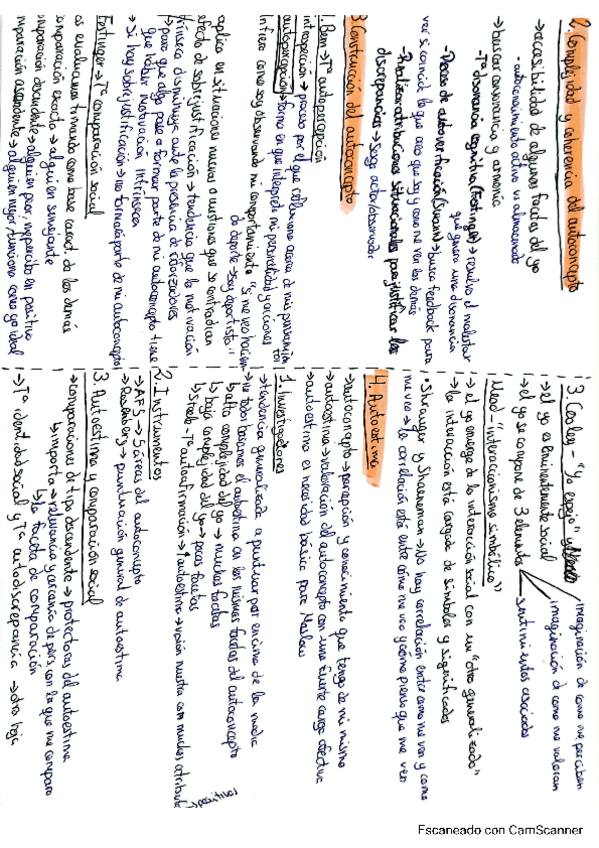 2. Complejidad y coherencia del autoconcepto
→ accesibilidad de algunas facetas del yo
- autoconocimiento activo vs almacenado
→ buscar consonancia y armonía
- Tª disonancia cognitiva (Festinger) → resuelvo el malestar
que genera una disonancia
- Proceso de autoverificación (Swann) → busca feedback para
ver si coincide lo que creo que soy y como me ven los demás
- Realizar atribuciones situacionales para justificar las
discrepancias → Sesgo actor/observador
3. Construcción del autoconcepto
1. Bem → Tª autopercepción
introspección → proceso por el que reflexiono acerca de mi
autopercepción → forma en que integro mi personalidad y acciones
Infiero como soy observando mi comportamiento "si me veo hacien-
do deporte → soy deportista"
aplica en situaciones nuevas o cuestiones que se contradicen
efecto de sobrejustificación → tendencia que la motivación
intrínseca disminuye ante la presencia de reforzadores
→ para que algo pase a formar parte de mi autoconcepto tiene
que haber motivación intrínseca
→ si hay sobrejustificación → no formará parte de mi autoconcepto
Festinger → Tª comparación social
nos evaluamos tomando como base caract. de los demás
comparación exacta → alguien semejante
comparación descendente → alguien peor, repercute en positivo
comparación ascendente → alguien mejor, funciona como yo ideal
3. Cooley - "Yo espejo" y
→ el yo es eminentemente social
→ el yo se compone de 3 elementos
imaginación de como me perciben
imaginación de como me valoran
sentimientos asociados
Mead - "interaccionismo simbólico"
→ el yo emerge de la interacción social con un "otro generalizado"
→ la interacción está cargada de símbolos y significados
* Shrauger y Shoeneman → No hay correlación entre como me ven y como
me veo → la correlación está entre cómo me veo y cómo pienso que me ven
4. Autoestima
→ autoconcepto → percepción y conocimiento que tengo de mi mismo
→ autoestima → valoración del autoconcepto con una fuerte carga afectiva
→ autoestima es necesidad básica para Maslow
1. Investigadores
→ tendencia generalizada a puntuar por encima de la media
→ no todos basamos el autoestima en las mismas facetas del autoconcepto
↳ alta complejidad del yo → muchas facetas
↳ baja complejidad del yo → pocas facetas
↳ Steele - Tª autoafirmación → ↑ autoestima → visión nuestra con muchos atributos
↳ positivos
2. Instrumentos
→ AF5 → 5 áreas del autoconcepto
→ Rosenberg → puntuación general de autoestima
3. Autoestima y comparación social
→ comparaciones de tipo descendente → protectoras del autoestima
↳ importa → relevancia y cercanía de pers con la que me comparo
↳ la faceta de comparación
→ Tª identidad social y Tª autodiscrepancia → otra hoja
Escaneado con CamScanner